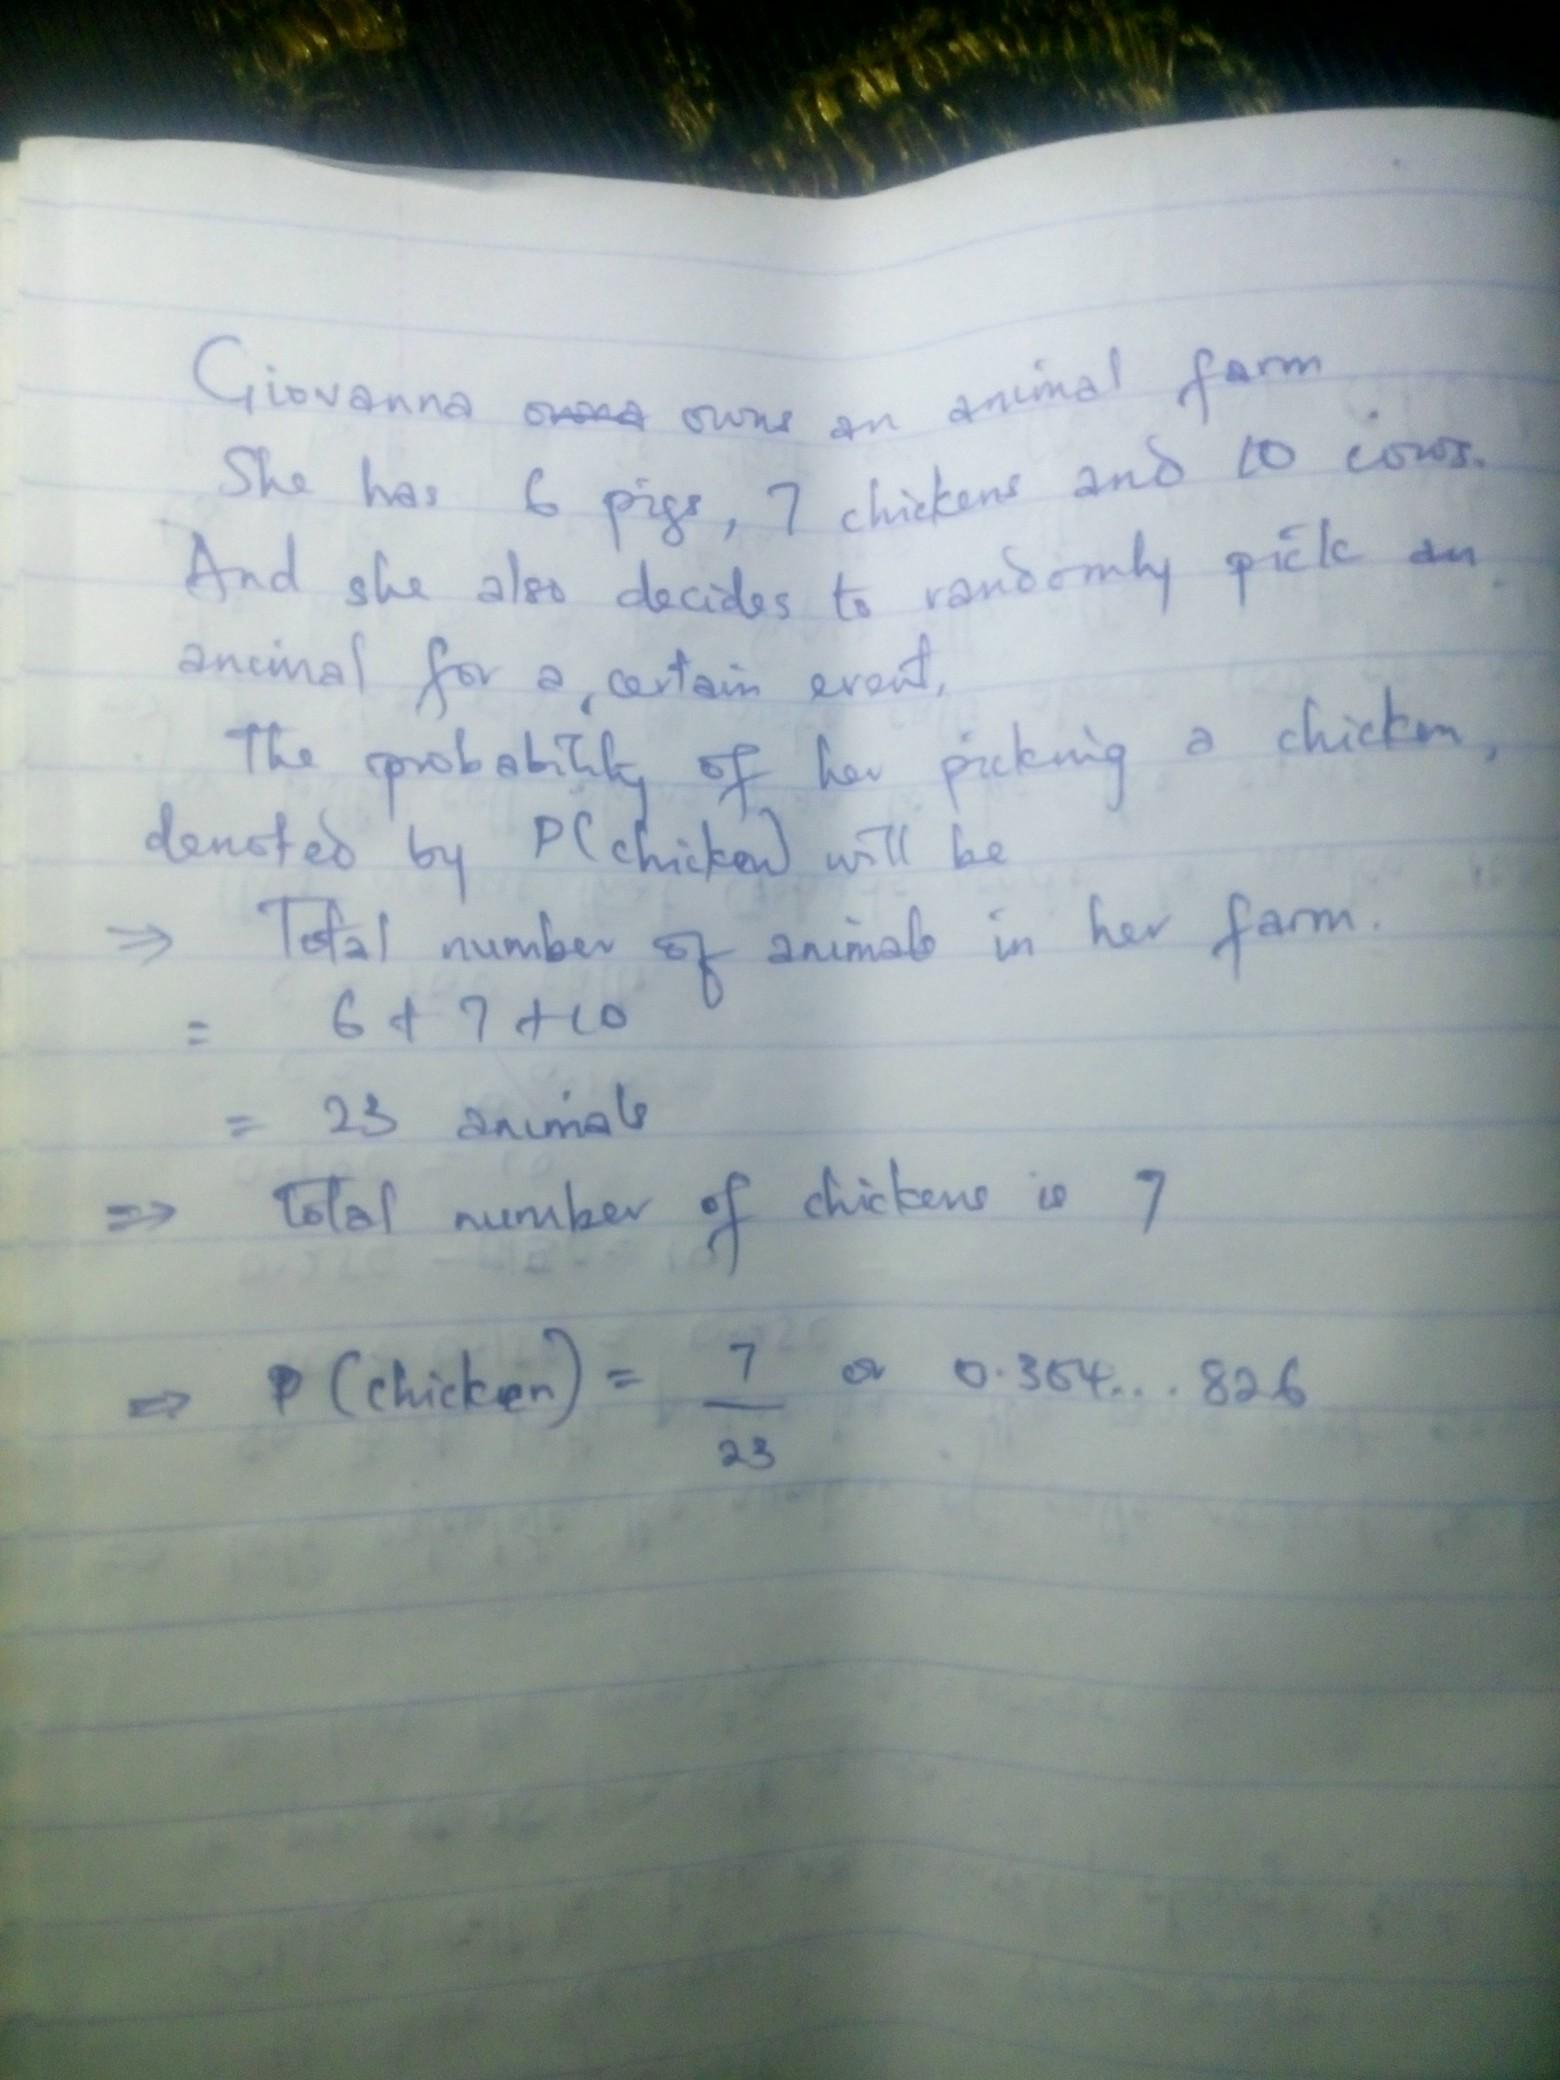 Giovanna owns an animal farm
She has 6 pigs, 7 chickens and 10 cows.
And she also decides to randomly pick an
animal for a, certain event,
The probability of her picking a chicken,
denoted by P(chicken) will be
⇒ Total number of animals in her farm.
= 6 + 7 + 10
= 23 animals
⇒ Total number of chickens is 7
⇒ P (chicken) = 7 or 0.304... 826
23